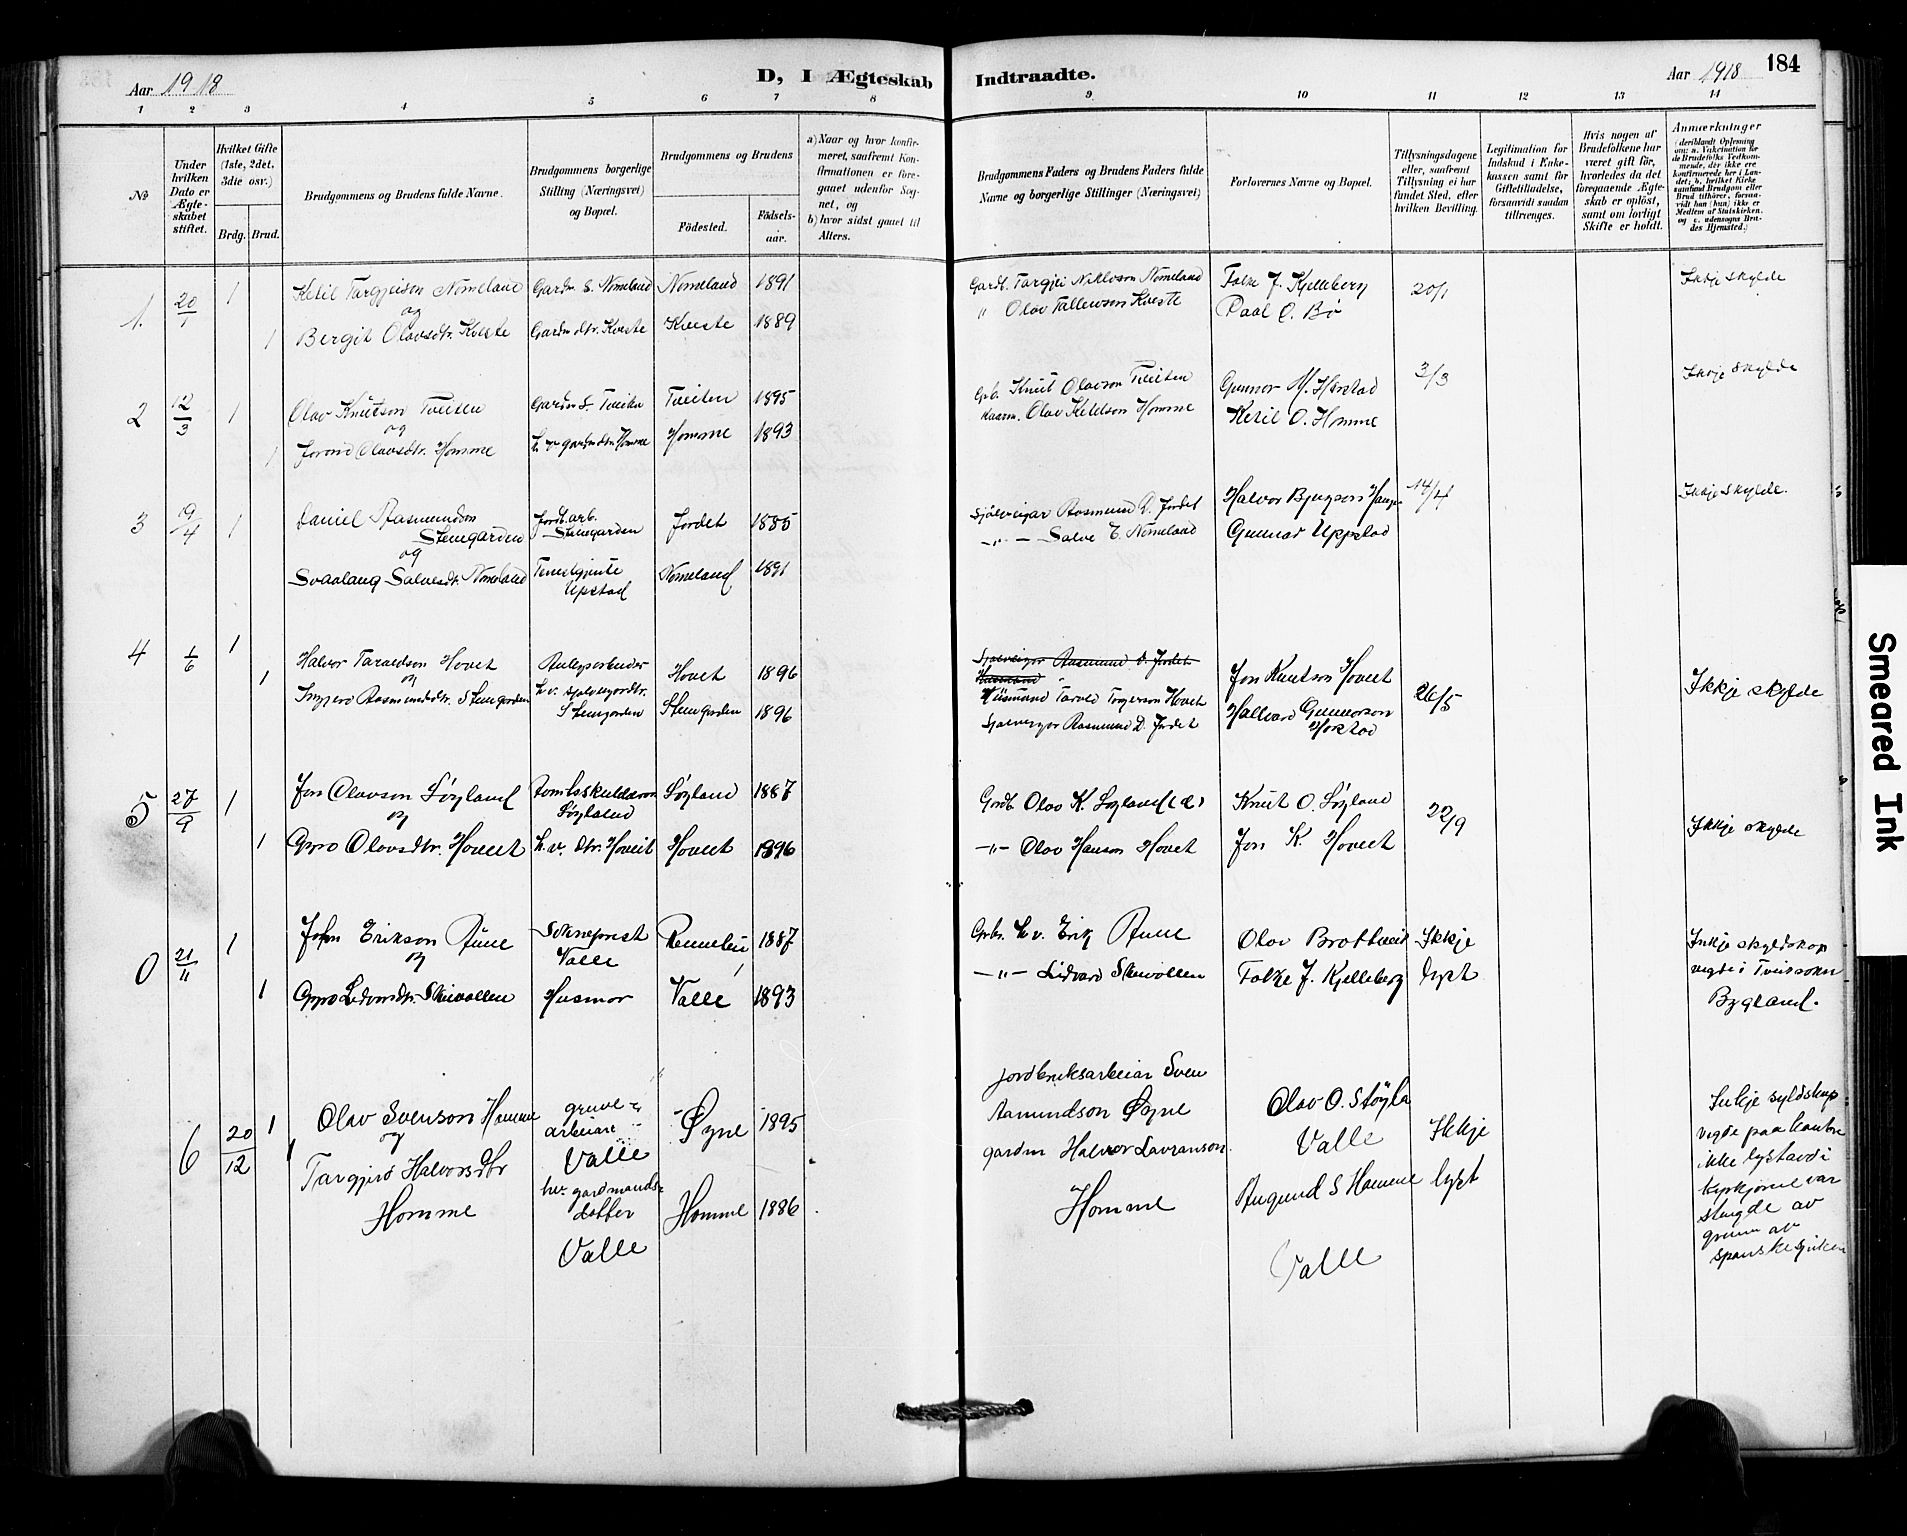 Aar 1918
D, I Ægteskab Indtraadte.
Aar 1918 184
1 2 3 4 5 6 7 8 9 10 11 12 13 14
№
Under hvilken Dato er Ægteskabet stiftet.
Hvilket Gifte (1ste, 2det, 3die osv.)
Brdg. Brud.
Brudgommens og Brudens fulde Navne.
Brudgommens borgerlige Stilling (Næringsvei) og Bopæl.
Brudgommens og Brudens
Fødested. Fødselsaar.
a) Naar og hvor konfirmeret, saafremt Konfirmationen er foregaaet udenfor Sognet, og
b) hvor sidst gaaet til Alters.
Brudgommens Faders og Brudens Faders fulde Navne og borgerlige Stillinger (Næringsvei)
Forlovernes Navne og Bopæl.
Tillysningsdagene eller, saafremt Tillysning ei har fundet Sted, efter hvilken Bevilling.
Legitimation for Indskud i Enkekassen samt for Giftetilladelse, forsaavidt saadan tiltrænges.
Hvis nogen af Brudefolkene har været gift før, hvorledes da det foregaaende Ægteskab er opløst, samt om lovligt Skifte er holdt.
Anmærkninger
1. 20/1 1 Ketil Targjeison Nomeland Gardm. s. Nomeland Nomeland 1891 Gardb. Targjei Niklosson Nomeland Folke J. Kjelleberg 20/1 Ikkje skylde
og " Olav Tallewson Kveste Paal O. Bø
1 Bergit Olavsdtr. Kveste Gardm dtr. Kveste Kveste 1889
2 12/3 1 Olav Knutson Tveiten Gardm S. Tveiten Tveiten 1895 Grb. Knut Olavson Tveiten Gunnar M. Harstad 3/3 Ikkje skylde
og Olav Ketelson Homme Ketil O. Homme
1 Jorond Olavsdtr. Homme h. v gardm dtr. Homme Homme 1893
3 9/4 1 Daniel Rasmundson Jordb. arb. Jordet 1885 Sjølveigar Rasmund D. Jordet Halvor Bjugson 14/4 Ikkje skylde.
Steingarden Steingarden -"- Salve T. Nomeland Gunnar Uppstad
og
Svaalaug Salvesdtr. Nomeland Tenestgjente Nomeland 1891
Upstad
4 1/6 1 Halvor Taraldson Hovet Hovet 1896 Sjølveigar Rasmund D. Jordet Jon Knutson Hoveet 26/5 Ikkje skylde
og Husmand
1 Rasmundsdtr. Steingarden h. v. sjølveigardtr. Husmand Tarald Torgerson Hovet Hallvard Gunnarson
Steingarden Steingarden 1896 Sjølveigar Rasmund D. Jordet Harstad
5 27/9 1 Jon Olavson Løyland Løyland 1887 Gardb. Olav K. Løyland (d) Knut O. Løyland 22/9 Ikkje skylde
og Løyland
1 Gyro Olavsdtr. Hoveet h. v. dtr. Hoveet Hoveet 1896 -"- Olav Hanson Hovet Jon K. Hoveet
0 21/11 1 John Erikson Aune Sokneprest Rennebu 1887 Gbr. h v. Erik Aune Olav Brottveit Ikkje Inkje skyldskap
og Valle
1 Gyro Skeivollen Husmor Valle 1893 -"- Skeivollen Folke J. Kjelleberg lyst vigde i Tveitsokn
Bygland.
6 20/12 1 Olav Svenson Homme gruve= Øyne 1895 jordbruksarbeiar Sven Olav O. Støyla Ikkje Inkje syldskap
og arbeiar Aamundson Øyne Valle lyst vigde paa kontoret
1 Targjerd Halvorsdtr Valle gardm Halvor Lavranson ikke lyst avdi
Homme hv. gardmands= Homme 1886 Homme Augund S Homme kyrkjorne var
dotter Valle stengde av
Valle grunn av
spanskesjuken
Smeared Ink